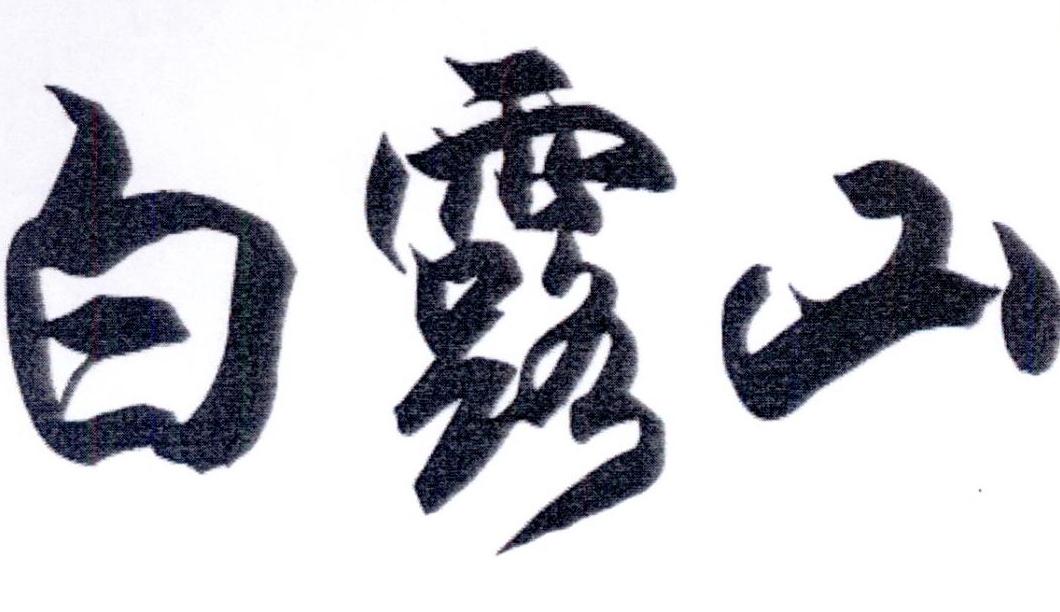 白露山